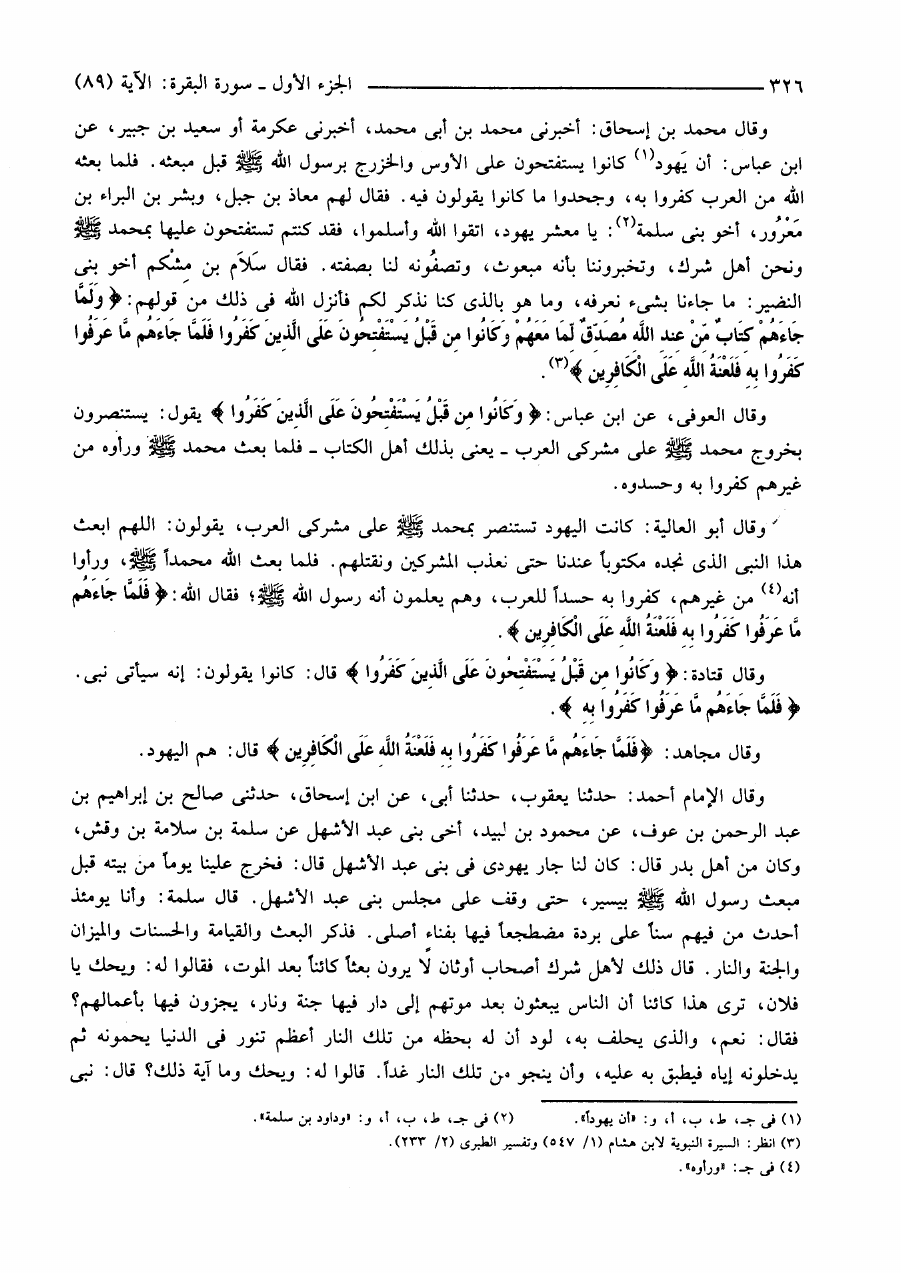 ٣٢٦ ـــــــــــــــــــــــــــــــــــــــــ الجزء الأول ـ سورة البقرة: الآية (٨٩)
وقال محمد بن إسحاق: أخبرنى محمد بن أبى محمد، أخبرنى عكرمة أو سعيد بن جبير، عن
ابن عباس: أن يَهود(١) كانوا يستفتحون على الأوس والخزرج برسول الله ﷺ قبل مبعثه. فلما بعثه
الله من العرب كفروا به، وجحدوا ما كانوا يقولون فيه. فقال لهم معاذ بن جبل، وبشر بن البراء بن
مَعْرُور، أخو بنى سلمة(٢): يا معشر يهود، اتقوا الله وأسلموا، فقد كنتم تستفتحون علينا بمحمد ﷺ
ونحن أهل شرك، وتخبروننا بأنه مبعوث، وتصفُونه لنا بصفته. فقال سَلاَم بن مِشْكم أخو بنى
النضير: ما جاءنا بشىء نعرفه، وما هو بالذى كنا نذكر لكم فأنزل الله فى ذلك من قولهم: ﴿ وَلَمَّا
جَاءَهُمْ كِتَابٌ مِّنْ عِندِ اللَّهِ مُصَدِّقٌ لِّمَا مَعَهُمْ وَكَانُوا مِن قَبْلُ يَسْتَفْتِحُونَ عَلَى الَّذِينَ كَفَرُوا فَلَمَّا جَاءَهُم مَّا عَرَفُوا
كَفَرُوا بِهِ فَلَعْنَةُ اللَّهِ عَلَى الْكَافِرِينَ ﴾(٣).
وقال العوفى، عن ابن عباس: ﴿ وَكَانُوا مِن قَبْلُ يَسْتَفْتِحُونَ عَلَى الَّذِينَ كَفَرُوا ﴾ يقول: يستنصرون
بخروج محمد ﷺ على مشركى العرب ـ يعنى بذلك أهل الكتاب ـ فلما بعث محمد ﷺ ورأوه من
غيرهم كفروا به وحسدوه.
وقال أبو العالية: كانت اليهود تستنصر بمحمد ﷺ على مشركى العرب، يقولون: اللهم ابعث
هذا النبى الذى نجده مكتوباً عندنا حتى نعذب المشركين ونقتلهم. فلما بعث الله محمداً ﷺ، ورأوا
أنه(٤) من غيرهم، كفروا به حسداً للعرب، وهم يعلمون أنه رسول الله ﷺ؛ فقال الله: ﴿ فَلَمَّا جَاءَهُم
مَّا عَرَفُوا كَفَرُوا بِهِ فَلَعْنَةُ اللَّهِ عَلَى الْكَافِرِينَ ﴾.
وقال قتادة: ﴿ وَكَانُوا مِن قَبْلُ يَسْتَفْتِحُونَ عَلَى الَّذِينَ كَفَرُوا ﴾ قال: كانوا يقولون: إنه سيأتى نبى.
﴿ فَلَمَّا جَاءَهُم مَّا عَرَفُوا كَفَرُوا بِهِ ﴾.
وقال مجاهد: ﴿فَلَمَّا جَاءَهُم مَّا عَرَفُوا كَفَرُوا بِهِ فَلَعْنَةُ اللَّهِ عَلَى الْكَافِرِينَ ﴾ قال: هم اليهود.
وقال الإمام أحمد: حدثنا يعقوب، حدثنا أبى، عن ابن إسحاق، حدثنى صالح بن إبراهيم بن
عبد الرحمن بن عوف، عن محمود بن لبيد، أخى بنى عبد الأشهل عن سلمة بن سلامة بن وقش،
وكان من أهل بدر قال: كان لنا جار يهودى فى بنى عبد الأشهل قال: فخرج علينا يوماً من بيته قبل
مبعث رسول الله ﷺ بيسير، حتى وقف على مجلس بنى عبد الأشهل. قال سلمة: وأنا يومئذ
أحدث من فيهم سناً على بردة مضطجعاً فيها بفناء أصلى. فذكر البعث والقيامة والحسنات والميزان
والجنة والنار. قال ذلك لأهل شرك أصحاب أوثان لا يرون بعثاً كائناً بعد الموت، فقالوا له: ويحك يا
فلان، ترى هذا كائنا أن الناس يبعثون بعد موتهم إلى دار فيها جنة ونار، يجزون فيها بأعمالهم؟
فقال: نعم، والذى يحلف به، لود أن له بحظه من تلك النار أعظم تنور فى الدنيا يحمونه ثم
يدخلونه إياه فيطبق به عليه، وأن ينجو من تلك النار غداً. قالوا له: ويحك وما آية ذلك؟ قال: نبى
(١) فى جـ، ط، ب، أ، و: «أن يهوداً». (٢) فى جـ، ط، ب، أ، و: «وداود بن سلمة».
(٣) انظر: السيرة النبوية لابن هشام (١/ ٥٤٧) وتفسير الطبرى (٢/ ٢٣٣).
(٤) فى جـ: «ورأوه».